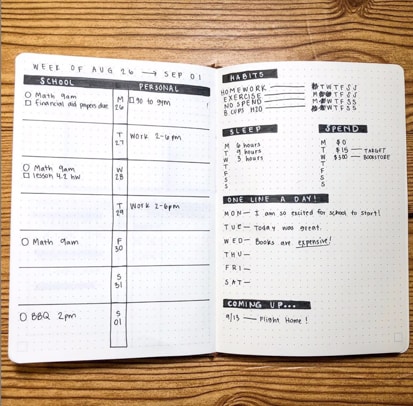 WEEK OF AUG 26 → SEP 01
SCHOOL
PERSONAL
○ Math 9am
□ financial aid papers due
M
26
□ go to gym
T
27
Work 2-6pm
○ Math 9am
□ lesson 4.2 hw
W
28
T
29
Work 2-6pm
○ Math 9am
F
30
S
31
○ BBQ 2pm
S
01
HABITS
HOMEWORK — T W T F S S
EXERCISE — M T F S S
NO SPEND — M T F S S
8 CUPS H2O — T F S S
SLEEP
M 6 hours
T 9 hours
W 5 hours
T
F
S
S
SPEND
M $0
T $15 — TARGET
W $300 — BOOKSTORE
T
F
S
S
ONE LINE A DAY!
MON— I am so excited for school to start!
TUE— Today was great.
WED— Books are expensive!
THU—
FRI—
SAT—
COMING UP...
9/13 — Flight Home!